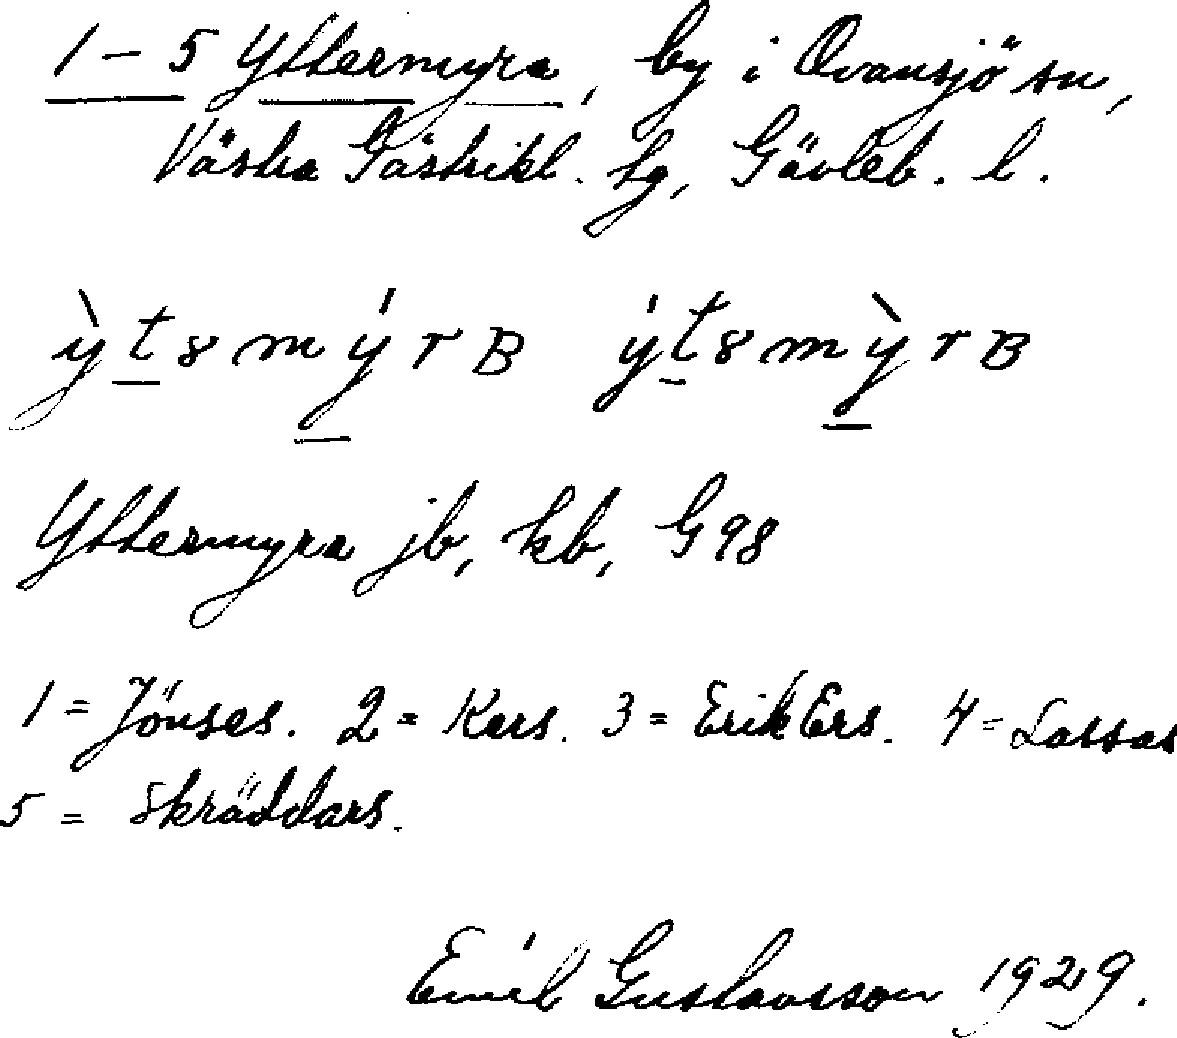 1 – 5 Yttermyra, by i Ovansjö sn,
Västra Gästrikl. tg, Gävleb. l.
ỳt8mýrB ýt8mỳrB
Yttermyra jb, kb, G98
1 = Jönses. 2 = Kers. 3 = Erik Ers. 4 = Lassas
5 = Skräddars.
Emil Gustavsson 1929.